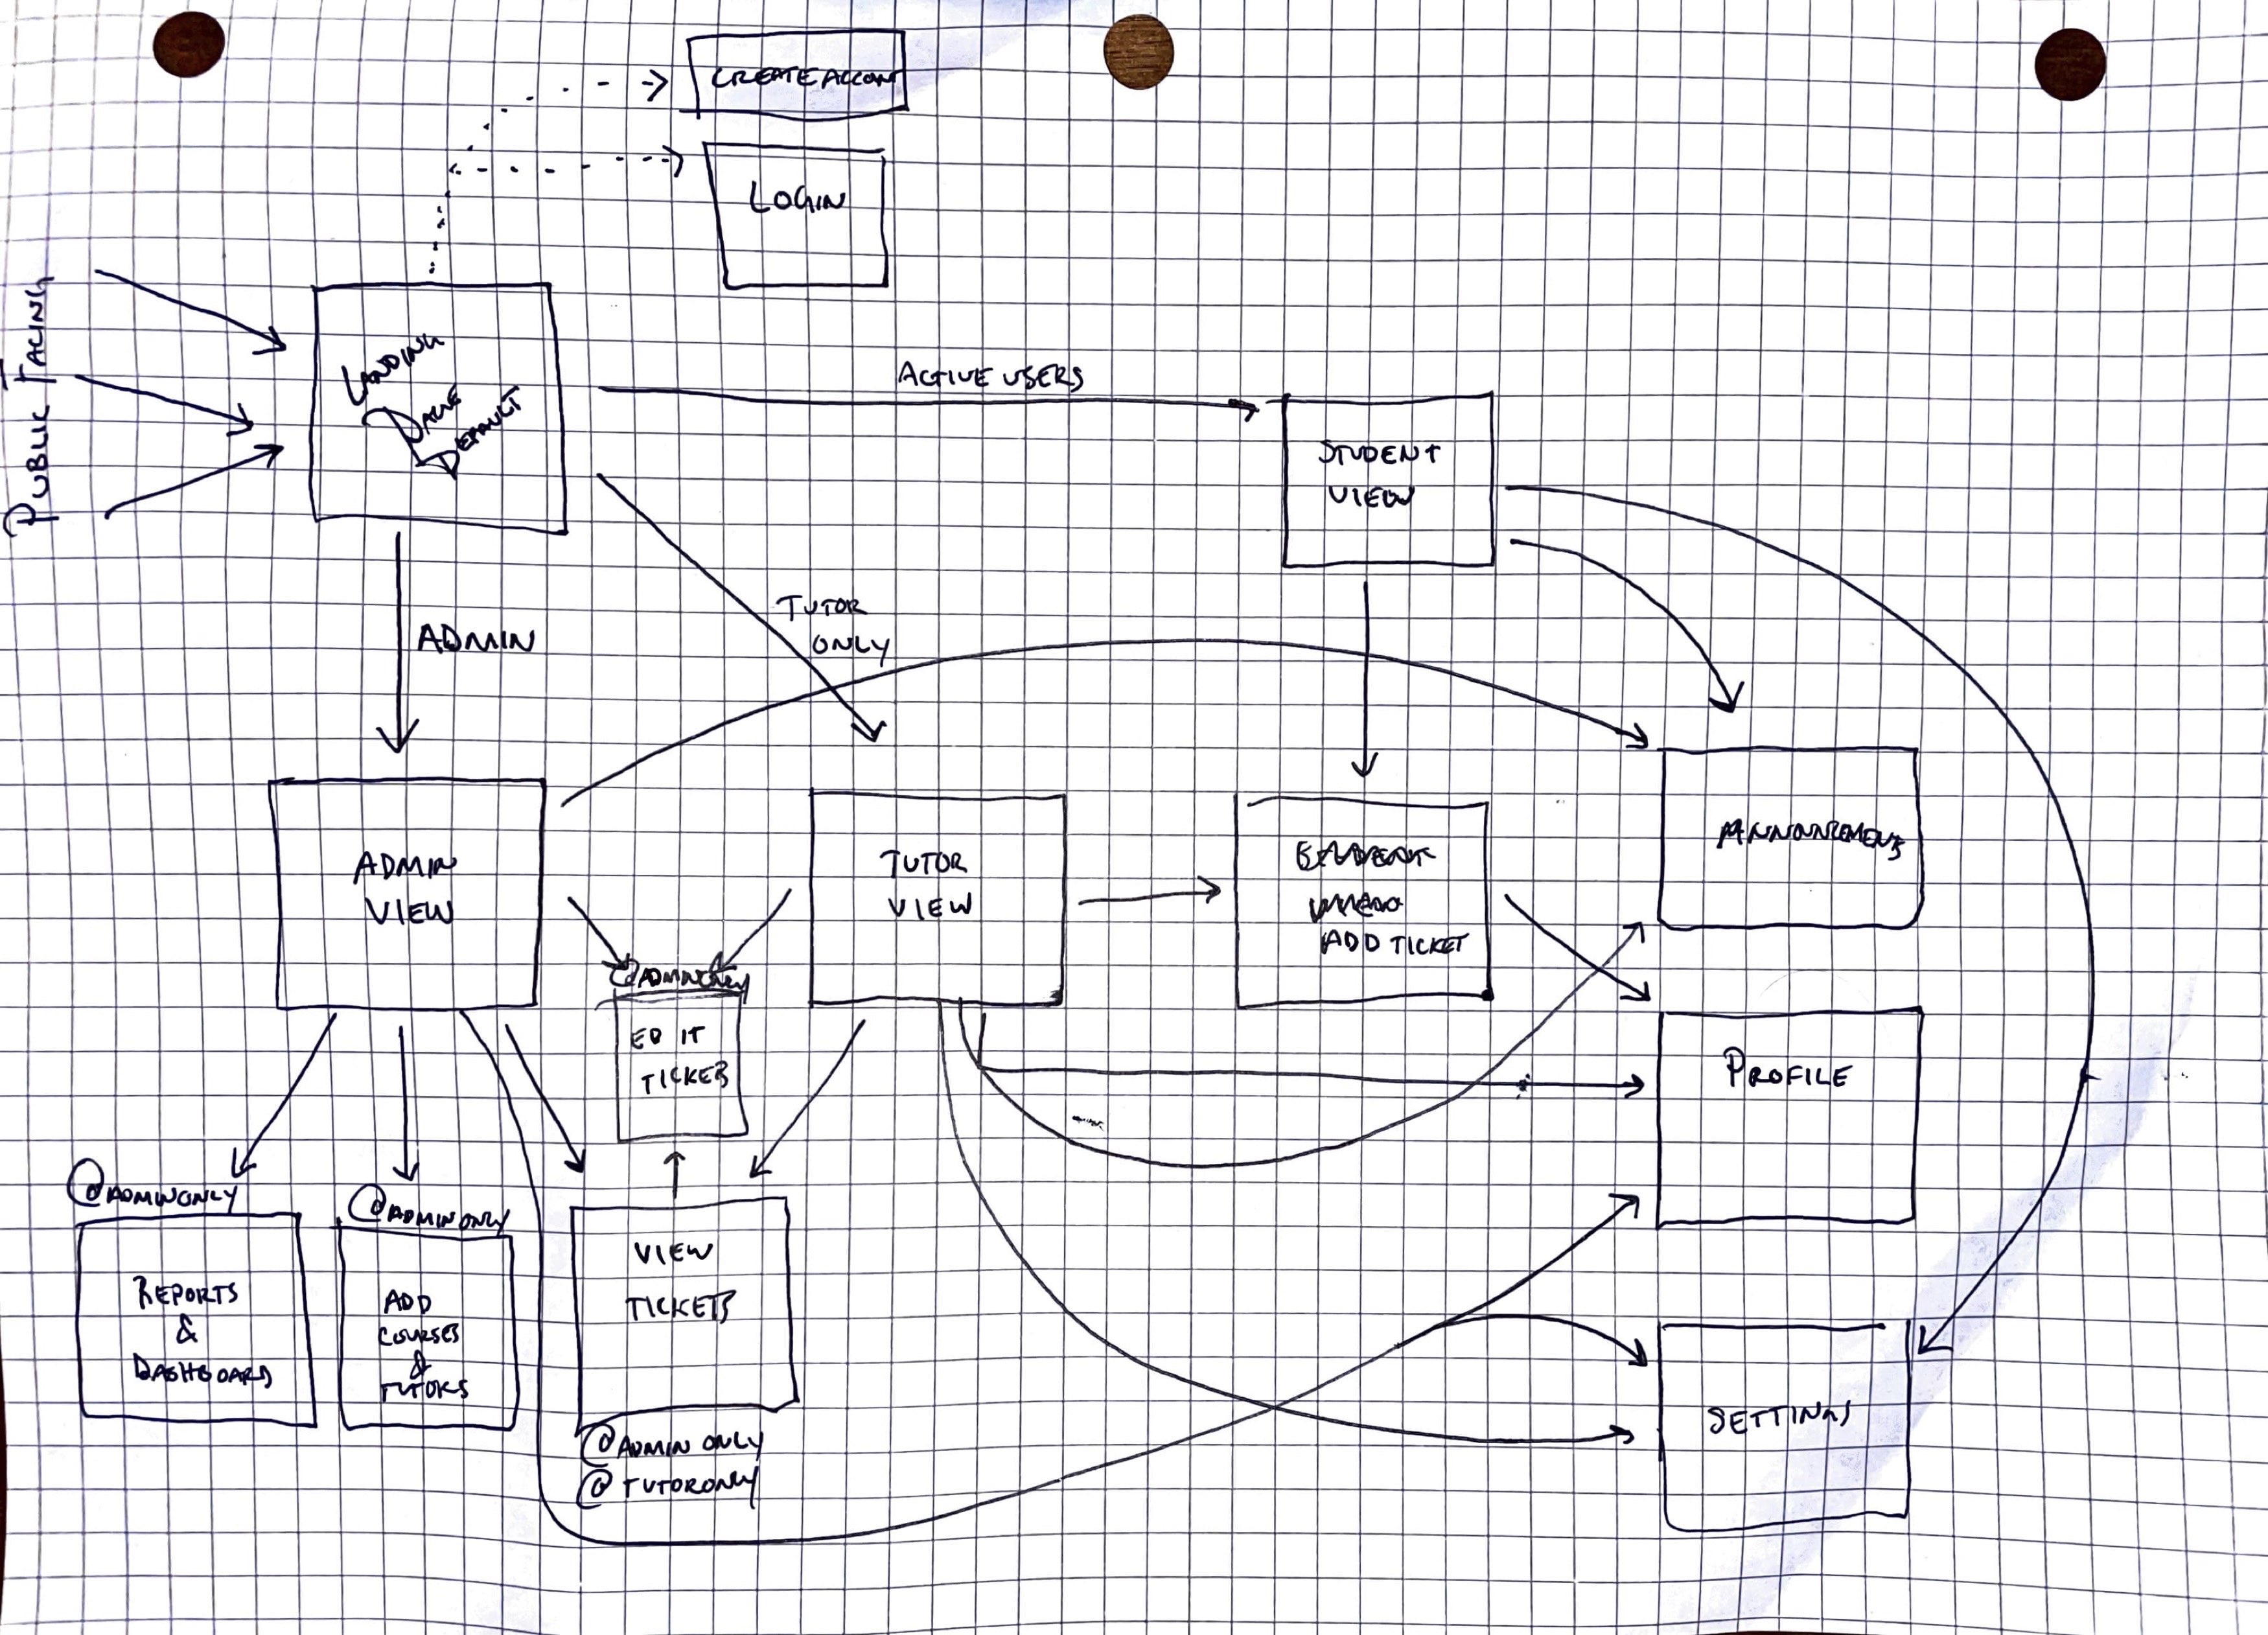 CREATE ACCONT
LOGIN
PUBLIC FACING
LANDING
PAGE
DEFAULT
ACTIVE USERS
STUDENT
VIEW
ADMIN
TUTOR
ONLY
ADMIN
VIEW
TUTOR
VIEW
ADD TICKET
@ADMINONLY
EDIT
TICKET
PROFILE
@ADMINONLY
REPORTS
&
DASHBOARD
@ADMINONLY
ADD
COURSES
&
TUTORS
VIEW
TICKETS
@ADMIN ONLY
@TUTORONLY
SETTINGS